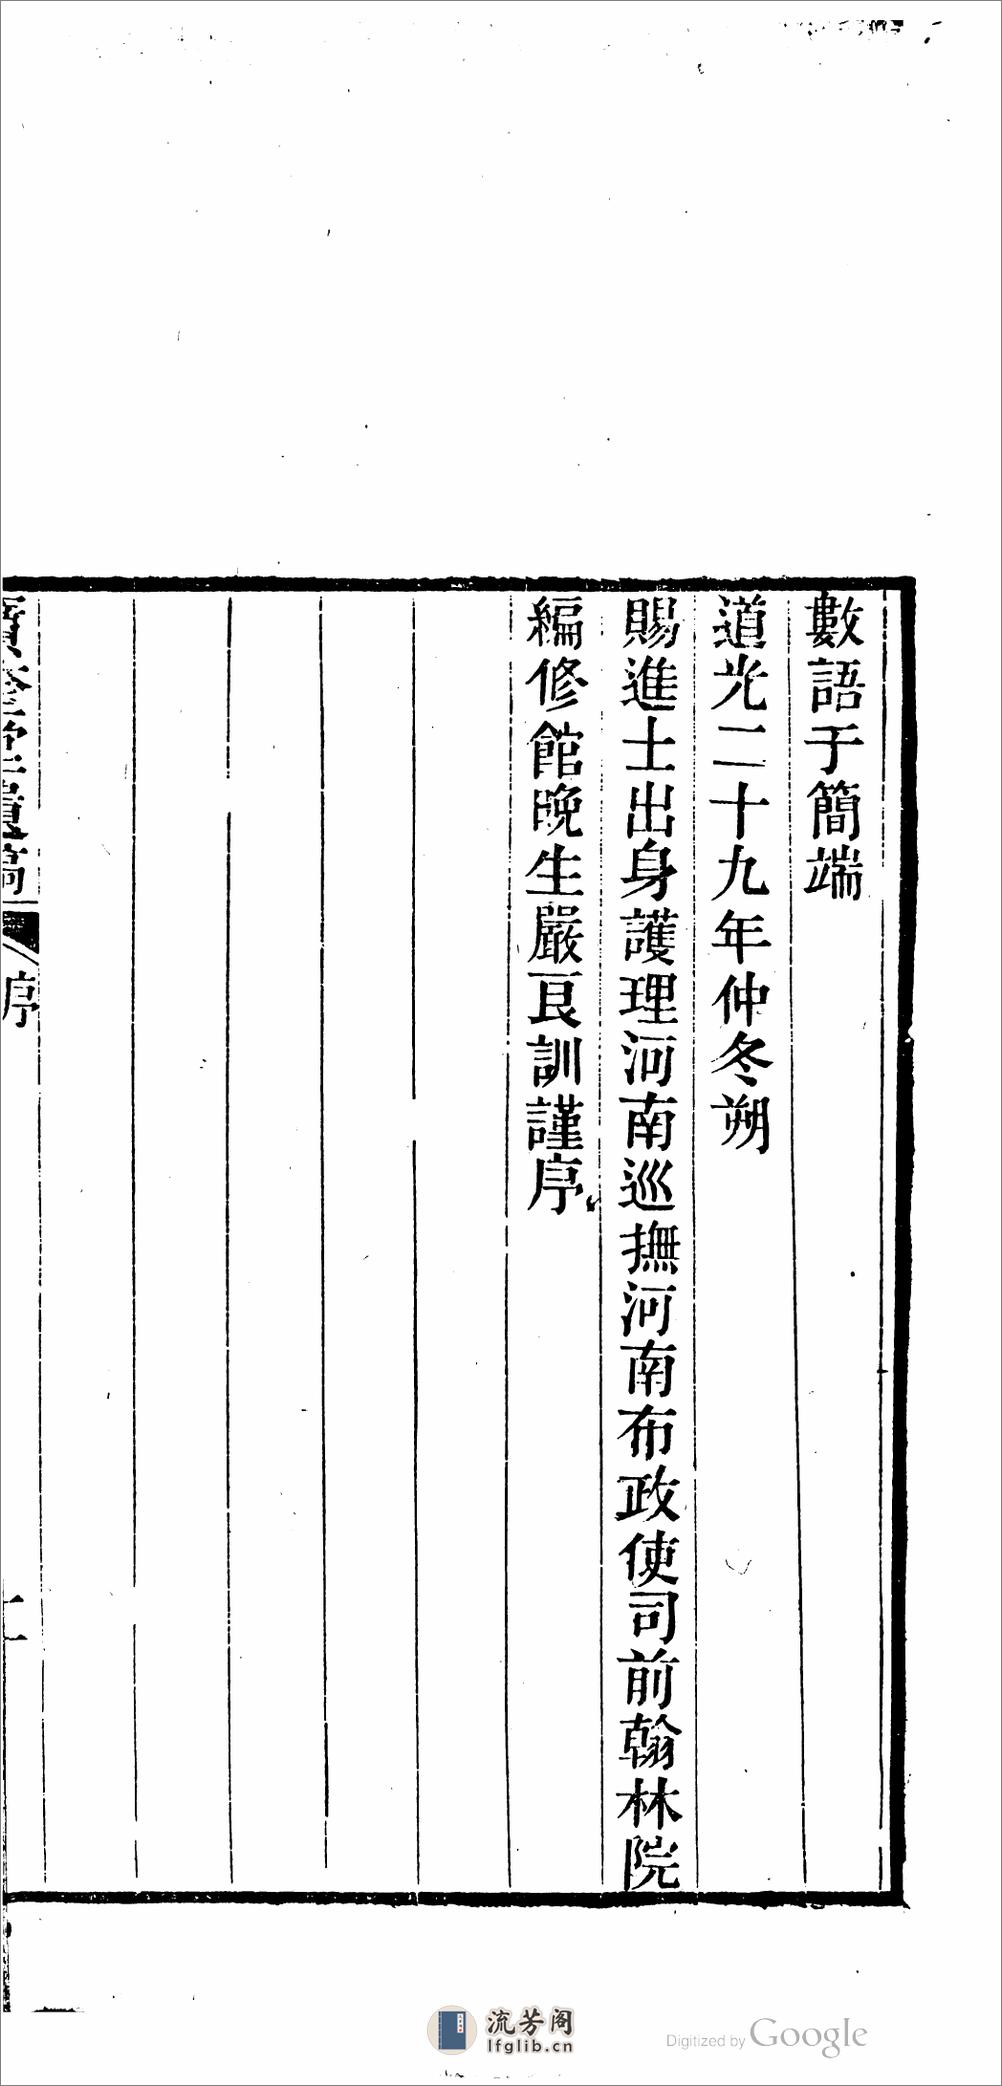 數語于簡端
道光二十九年仲冬朔
賜進士出身護理河南巡撫河南布政使司前翰林院
編修館晚生嚴良訓謹序
堂遺稿
序
二
流芳阁
lfglib.cn
Digitized by Google